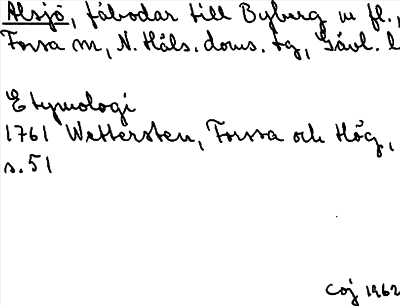 Alsjö, fäbodar till Byberg m fl.,
Forsa sn, N. Häls. doms. tg, Gävl. l
Etymologi
1761 Wettersten, Forssa och Hög,
s. 51
COJ 1962